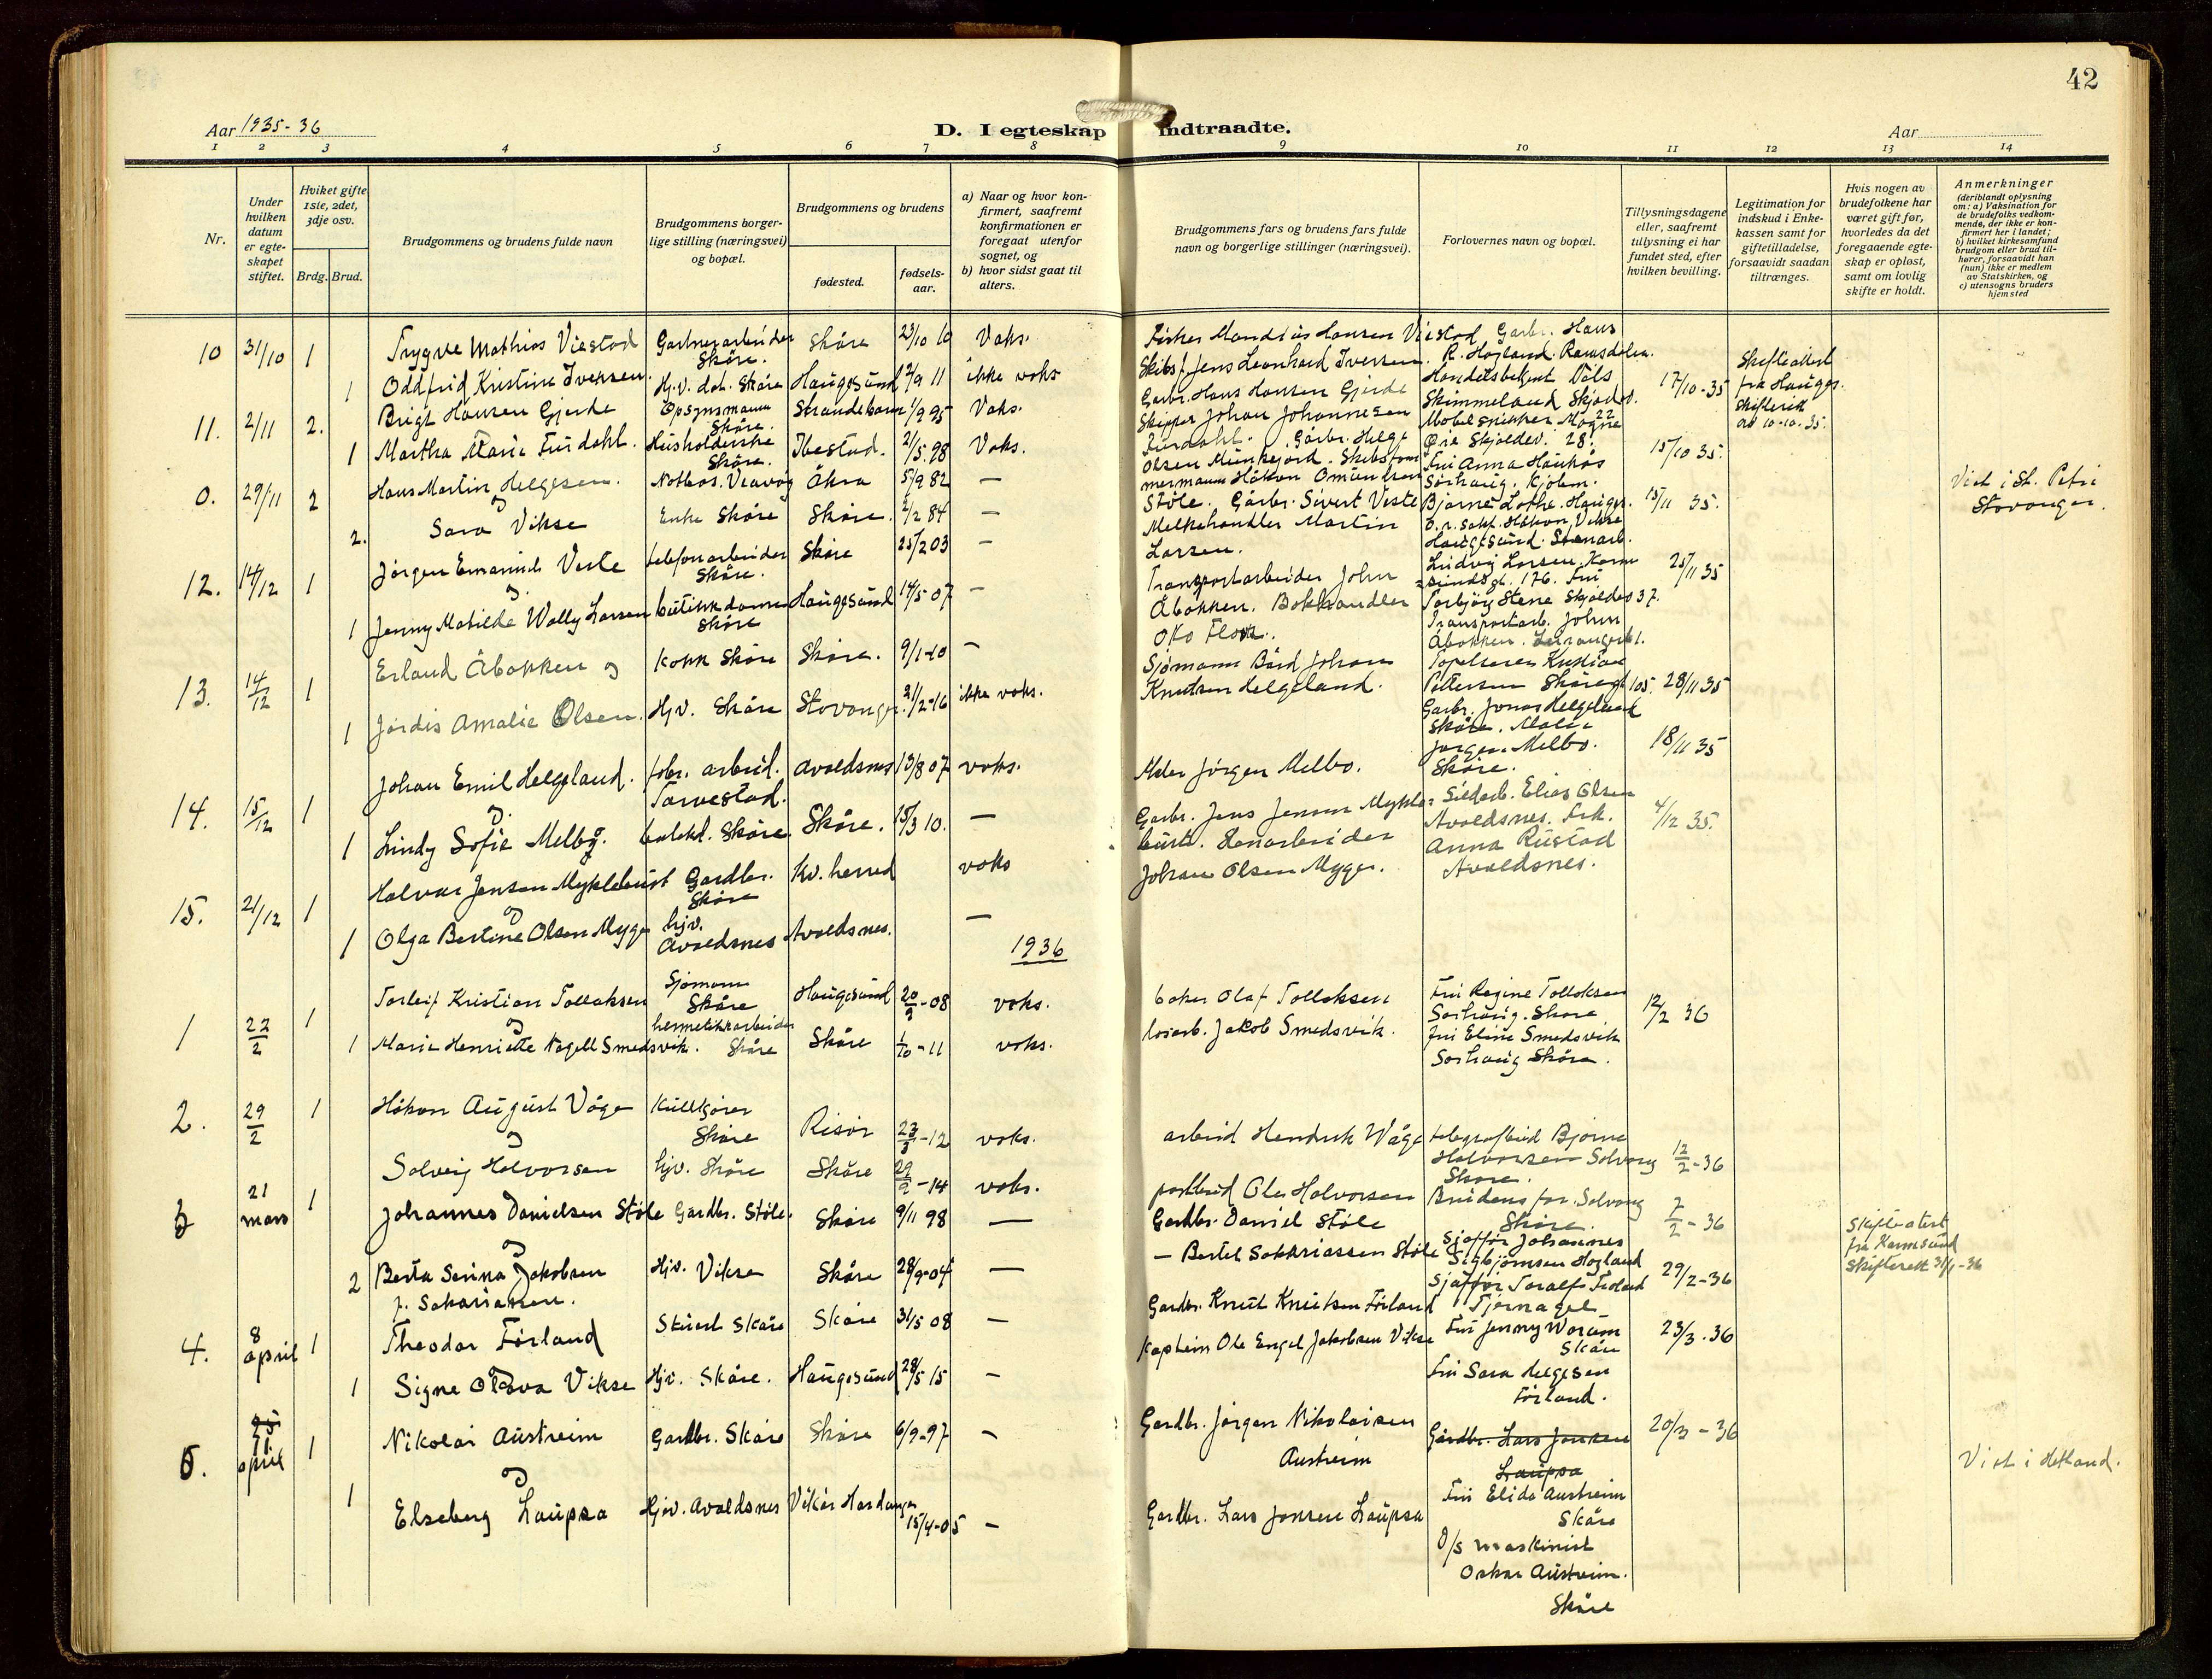 42
Aar 1935-36
D. I egteskap indtraadte.
Aar
1 2 3 4 5 6 7 8 9 10 11 12 13 14
Nr.
Under hvilken datum er egte-skapet stiftet.
Hviket gifte 1ste, 2det, 3dje osv.
Brdg. Brud.
Brudgommens og brudens fulde navn
Brudgommens borger-lige stilling (næringsvei) og bopæl.
Brudgommens og brudens
fødested.
fødsels-aar.
a) Naar og hvor kon-firmert, saafremt konfirmationen er foregaat utenfor sognet, og
b) hvor sidst gaat til alters.
Brudgommens fars og brudens fars fulde navn og borgerlige stillinger (næringsvei).
Forlovernes navn og bopæl.
Tillysningsdagene eller, saafremt tillysning ei har fundet sted, efter hvilken bevilling.
Legitimation for indskud i Enke-kassen samt for giftetilladelse, forsaavidt saadan tiltrænges.
Hvis nogen av brudefolkene har været gift før, hvorledes da det foregaaende egte-skap er opløst, samt om lovlig skifte er holdt.
Anmerkninger (deriblandt oplysning om: a) Vaksination for de brudefolks vedkom-mende, der ikke er kon-firmert her i landet; b) hvilket kirkesamfund brudgom eller brud til-hører, forsaavidt han (hun) ikke er medlem av Statskirken, og c) utensogns bruders hjemsted
10 31/10 1 Trygve Mathias Viestad Gartnerarbeider Skåre. Skåre 23/10 10 Vaks.
1 Oddfrid Kristine Iversen. Hj.v. do. Skåre Haugesund 2/9 11 ikke vaks
11. 2/11 2. Brigt Hansen Gjerde Opsynsmann Skåre. Strandebarm 1/9 95 Vaks.
1 Martha Marie Furdahl. Husholderske Skåre. Ibestad. 2/5.98 Vaks.
0. 29/11 2 Hans Martin Helgesen. og Notbas. Veavåg Åkra 5/9 82 —
2. Sara Vikse Enke Skåre Skåre. 2/2 84 —
12. 14/12 1 Jørgen Emanuel Veste og telefonarbeider Skåre. Skåre 25/2 03 —
1 Jenny Matilde Wally Larsen butikkdame Skåre Haugesund 14/5 07 —
13. 14/12 1 Erland Åbakken og kokk Skåre Skåre. 9/1-10 —
1 Jordis Amalie Olsen. Hjv. Skåre Stavanger. 21/2-16 ikke vaks.
14. 15/12 1 Johan Emil Helgeland. og fabr. arbeid. Torvestad. Avaldsnes 13/8 07 vaks.
1 Lindy Sofie Melbø. Skåre. Skåre. 15/3 10. —
15. 21/12 1 Halvar Jensen Myklebust og Gardbr. Skåre Kv. herred vaks
1 Olga Bertine Olsen Myge hjv. Avaldsnes Avaldsnes. —
1936
1 22/2 1 Torleif Kristian Tollaksen og Sjømann Skåre Haugesund 20/9-08 vaks.
1 Marie Henriette Nagell Smedsvik. hermetikkarbeider Skåre Skåre 1/10-11 vaks.
2. 29/2 1 Håkon August Våge og Kullkjører Skåre Risør 23/3-12 vaks.
Solveig Halvorsen hjv. Skåre Skåre 29/9-14 vaks.
3 21 mars 1 Johannes Danielsen Støle og Gardbr. Støle. Skåre 9/11 98 —
2 Berta Serina Jakobsen f. Sakariassen. Hjv. Vikse Skåre 28/9-04 —
4. 8 april 1 Theodor Førland Stuert Skåre Skåre 31/5 08 —
1 Signe Olava Vikse Hjv. Skåre. Haugesund 28/5 15 —
5. 11. april 1 Nikolai Austreim og Gardbr. Skåre Skåre 6/9-97 —
1 Elseberg Laupsa Hjv. Avaldsnes Vikør Hardanger 15/4-05 —
Fisker Mandius Hansen Viestad Garbr. Hans
Skibsf. Jens Leonhard Iversen. R. Hogland. Ramsdalen.
Garbr. Hans Hansen Gjerde Handelsbetjent Nils
Skipper Johan Johannesen Skimmeland Skjoldv.
Furdahl. Garbr. Helge Møbelsnikker Magne
Olsen Munkejord. Skibstøm Øie Skjoldev. 28.
mermann Håkon Omundsen Fru Anna Haukås
Støle. Garbr. Sivert Veste Sørhaug. Kjølem.
Melkehandler Martin Bjarne Lothe. Hauges.
Larsen. O.r. sakf. Håkon Vikse
Haugesund. Stenarb.
Transportarbeider John Ludvig Larsen. Karm
sundsgt. 176. Fru
Åbakken. Bokhandler Torbjørg Stene Skjoldev 37.
Otto Floor. Transportarb. John
Åbakken.
Sjømann Bård Johan Kristian
Knudsen Helgeland. Pettersen Skåregt 105.
Garbr. Jonas Helgeland
Skåre. Maler
Maler Jørgen Melbo. Jørgen Melbo. Skåre.
Garbr. Jens Jensen Mykle- Sildarb. Elias Olsen
bust. Stenarbeider Avaldsnes. Frk.
Johan Olsen Myge. Anna Rustad Avaldsnes.
17/10-35
15/10 35.
15/11 35.
25/11 35
28/11 35
18/11 35
4/12 35.
Skifteattest fra Hauges. skifterett av 10-10-35.
Viet i St. Petri Stavanger.
baker Olaf Tollaksen Fru Regine Tollaksen Sørhaug. Skåre 12/2 36
løsarb. Jakob Smedsvik. Fru Eline Smedsvik Sørhaug Skåre.
arbeid Hendrik Våge telegrafbud Bjarne Halvorsen Solvang Skåre. 12/2-36
postbud Ole Halvorsen Brudens far. Solvang Skåre.
Gardbr. Daniel Støle Sjaffør Johannes Sigbjørnsen Hogland 7/2-36
— Bertel Sakkriassen Støle Sjaffør Toralf Tjernagel 29/2-36
Skifteatest fra Karmsund Skifterett 31/1-36
Gardbr. Knut Knutsen Førland Fru Jenny Worum Skåre 23/3.36
Kaptein Ole Engel Jakobsen Vikse Fru Sara Helgesen Førland.
Gardbr. Jørgen Nikolaisen Austreim Gardbr. Lars Jonsen Laupsa 20/3-36
Fru Elida Austreim Skåre
Gardbr. Lars Jonsen Laupsa D/s maskinist Oskar Austreim. Skåre
Viet i Hetland.